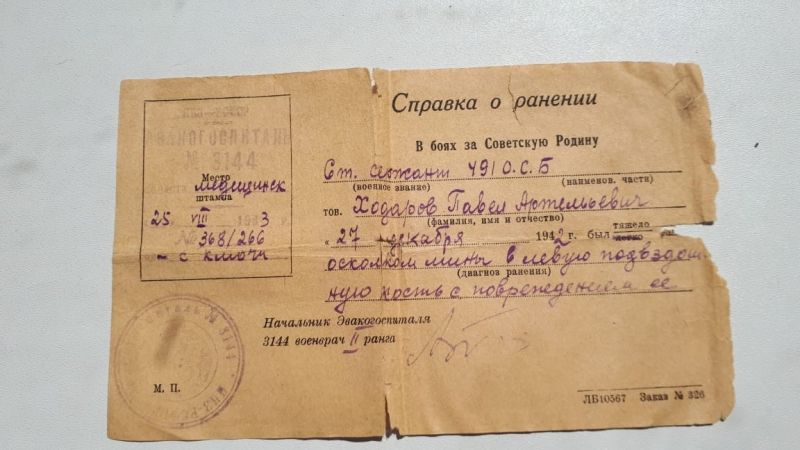 ЭВАКОГОСПИТАЛЬ
№ 3144
Место
штампа
25 VIII 1943 г.
№ 368/266
Справка о ранении
В боях за Советскую Родину
Ст. сержант 491 О.С.Б
(военное звание) (наименов. части)
тов. Ходаров Павел Артемьевич
(фамилия, имя и отчество)
„ 27 декабря 1942 г. был тяжело
легко
осколком мины в левую подвздош
(диагноз ранения)
ную кость с повреждением ее
Начальник Эвакогоспиталя
3144 военврач II ранга
№ 3144
М. П.
ЛБ10567 Заказ № 326